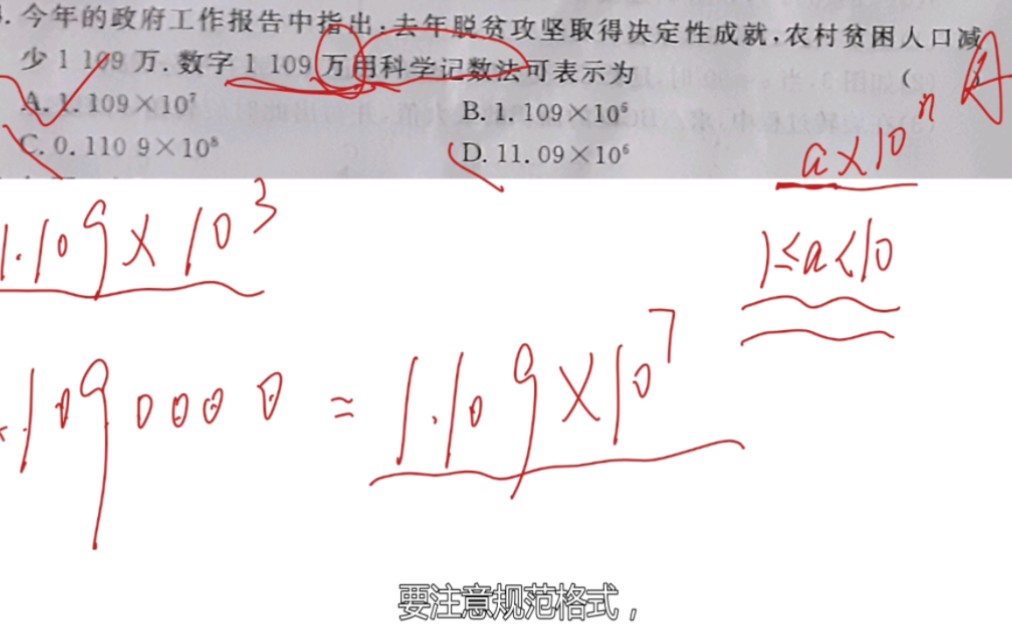 今年的政府工作报告中指出,去年脱贫攻坚取得决定性成就,农村贫困人口减
少 1 109 万,数字 1 109 万用科学记数法可表示为 (
A. 1. 109×10⁷ B. 1. 109×10⁶
C. 0. 110 9×10⁸ D. 11. 09×10⁶
a×10ⁿ
1.109×10³
1≤a<10
.1090000 = 1.109×10⁷
要注意规范格式,